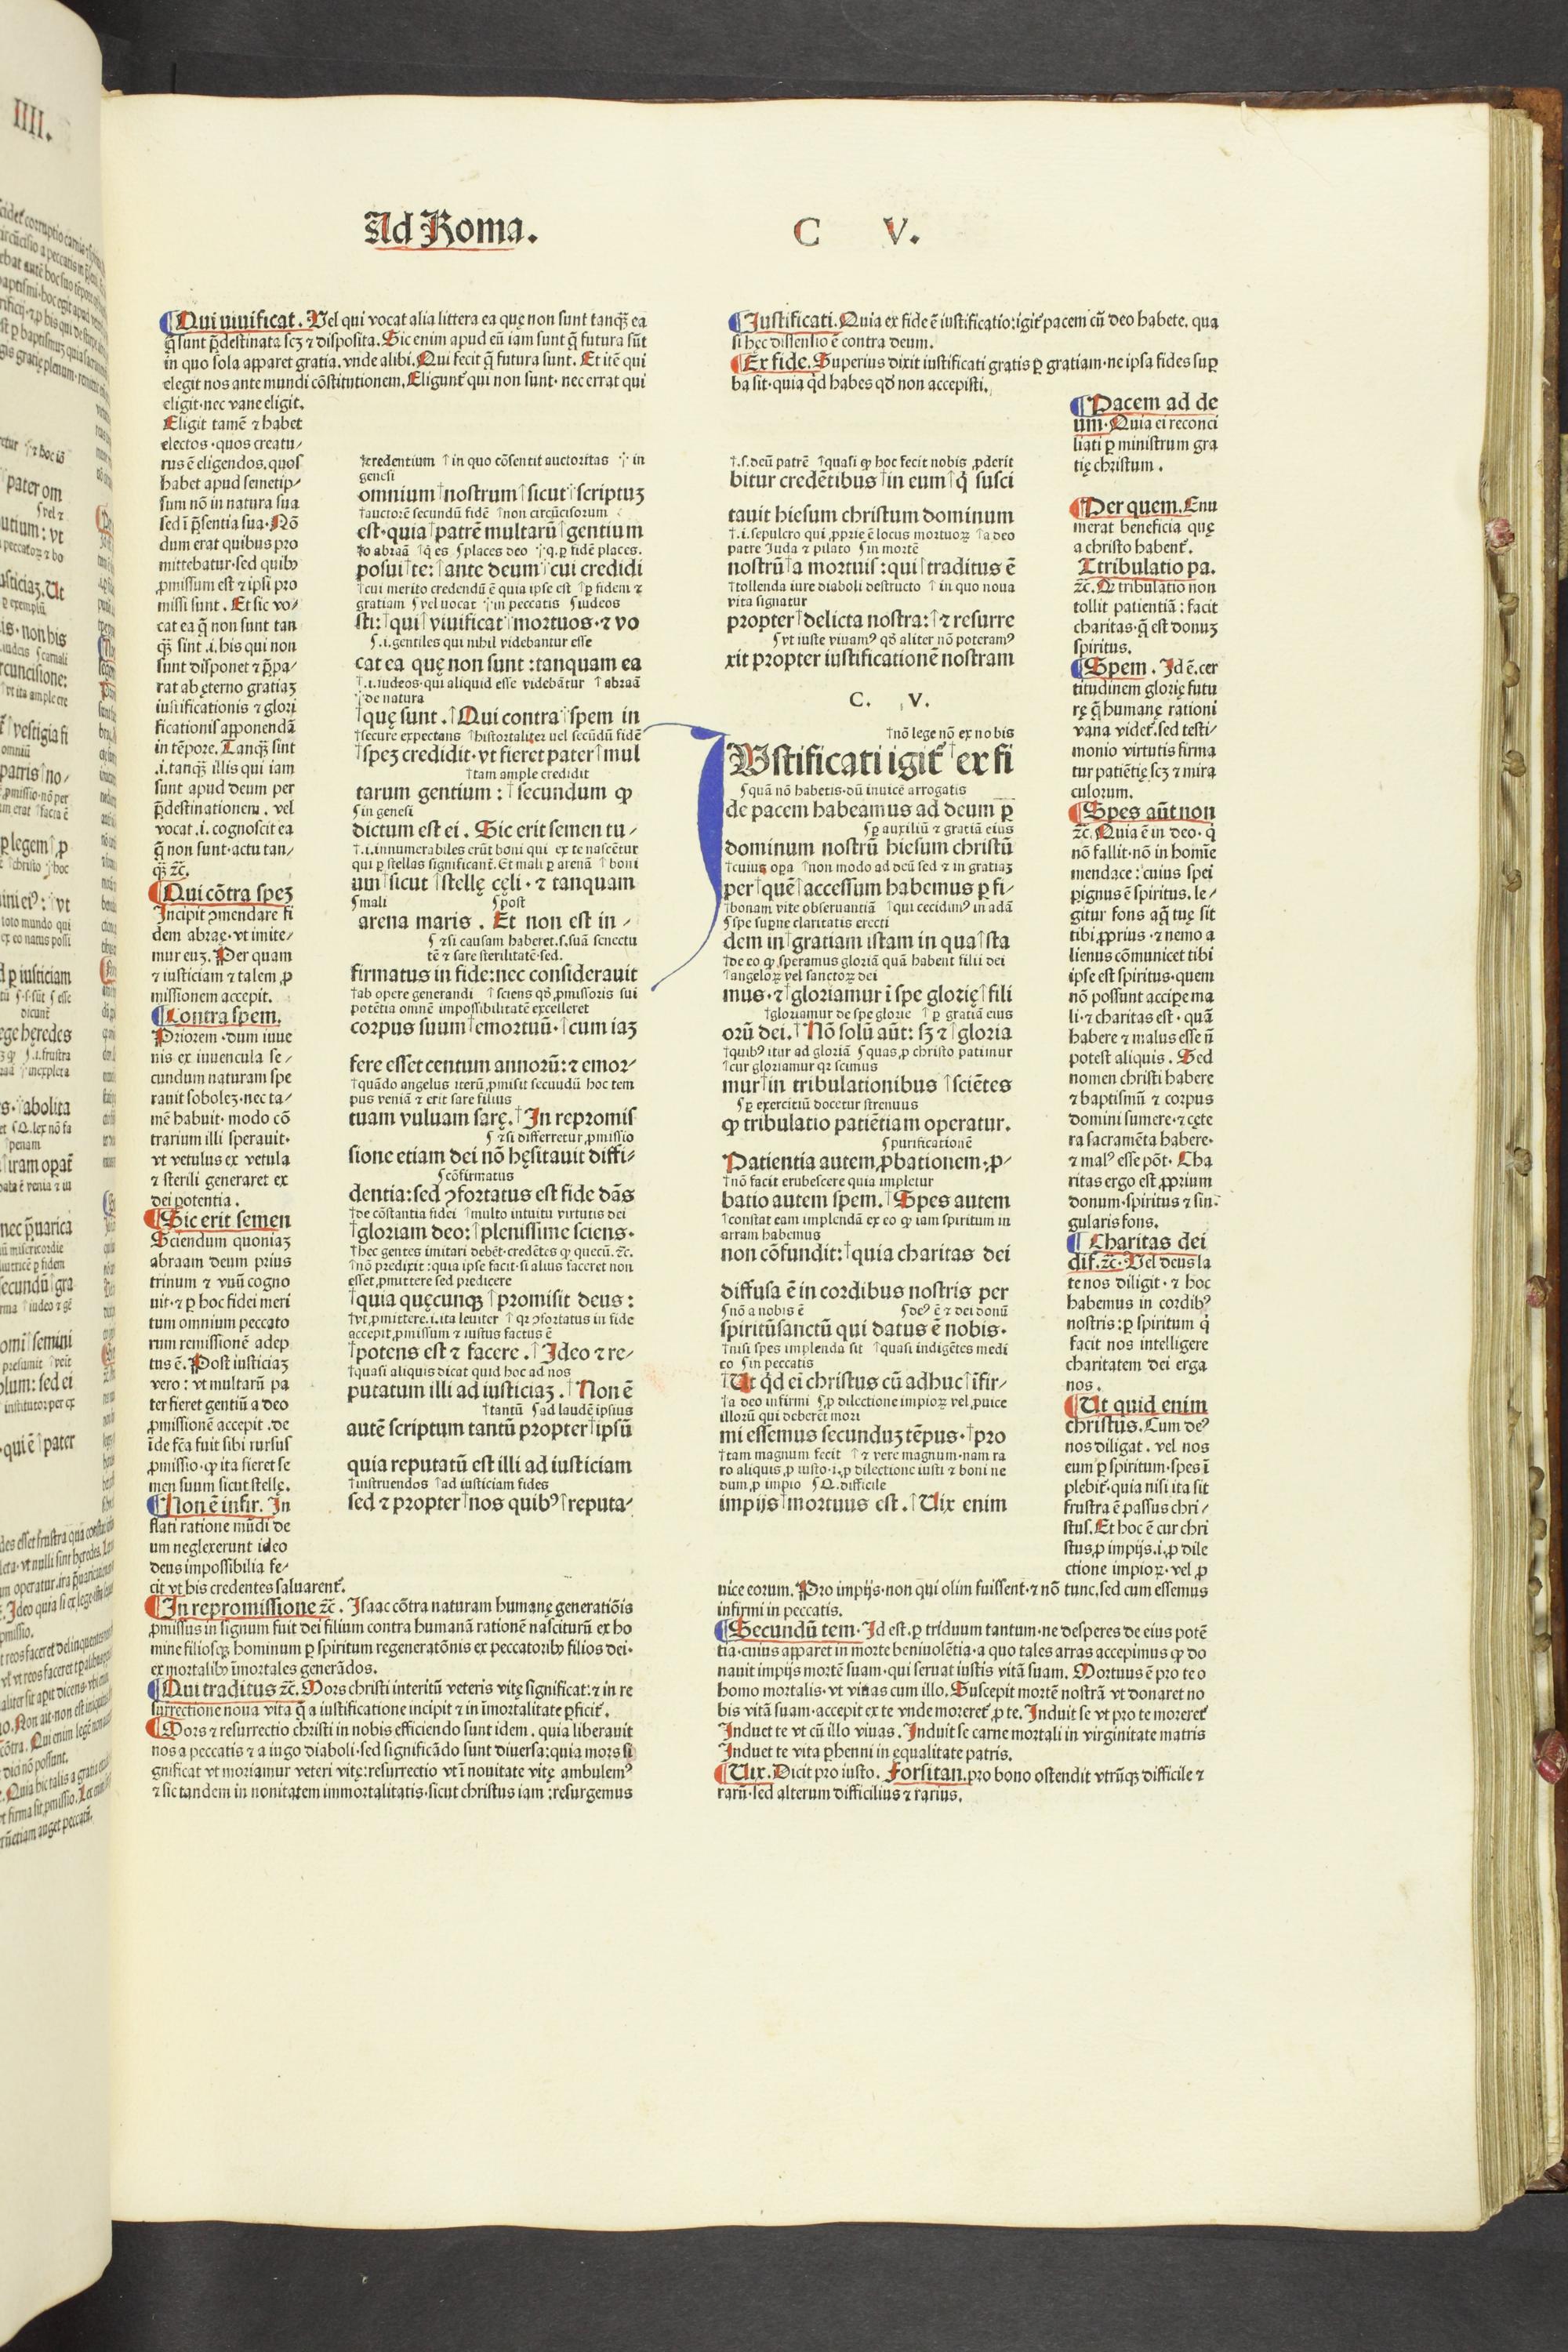 Ad Roma.
C V.
Qui viuificat. Vel qui vocat alia littera ea quę non sunt tanqꝫ ea
q̄ sunt p̄destinata scꝫ ⁊ disposita. Sic enim apud eū iam sunt q̄ futura sūt
in quo sola apparet gratia. vnde alibi. Qui fecit q̄ futura sunt. Et itē qui
elegit nos ante mundi cōstitutionem. Eligunt̄ qui non sunt· nec errat qui
eligit· nec vane eligit.
Eligit tamē ⁊ habet
electos· quos creatu/
rus ē eligendos. quos
habet apud semetip/
sum nō in natura sua
sed ī p̄sentia sua· Nō
dum erat quibus pro
mittebatur· sed quibꝰ
ꝓmissum est ⁊ ipsi pro
missi sunt. Et sic vo/
cat ea q̄ non sunt tan
qꝫ sint .i. his qui non
sunt disponet ⁊ p̄pa/
rat ab ęterno gratiaꝫ
iustificationis ⁊ glori
ficationis apponendā
in tēpore. Tanqꝫ sint
.i. tanqꝫ illis qui iam
sunt apud deum per
p̄destinationem. vel
vocat .i. cognoscit ea
q̄ non sunt· actu tan/
qꝫ ⁊c̄.
Qui cōtra speꝫ
Incipit ꝯmendare fi
dem abraę· vt imite/
mur euꝫ. Per quam
⁊ iusticiam ⁊ talem ꝓ
missionem accepit.
Contra spem.
Priorem· dum iuue
nis ex iuuencula se/
cundum naturam spe
rauit soboleꝫ· nec ta/
mē habuit· modo cō
trarium illi sperauit·
vt vetulus ex vetula
⁊ sterili generaret ex
dei potentia.
Sic erit semen
Sciendum quoniaꝫ
abraam deum prius
trinum ⁊ vnū cogno
uit· ⁊ ꝑ hoc fidei meri
tum omnium peccato
rum remissionē adep
tus ē. Post iusticiaꝫ
vero: vt multarū pa
ter fieret gentiū a deo
ꝓmissionē accepit. de
īde fc̄a fuit sibi rursus
ꝓmissio· ꝙ ita fieret se
men suum sicut stelle.
Non ē infir. In
flati ratione mūdi de
um neglexerunt ideo
deus impossibilia fe/
cit vt his credentes saluarent̄.
In repromissione ⁊c̄. Isaac cōtra naturam humanę generatiōis
ꝓmissus in signum fuit dei filium contra humanā rationē nasciturū ex ho
mine filiosqꝫ hominum ꝑ spiritum regeneratōnis ex peccatoribꝰ filios dei·
ex mortalibꝰ īmortales generādos.
Qui traditus ⁊c̄. Mors christi interitū veteris vitę significat: ⁊ in re
surrectione noua vita q̄ a iustificatione incipit ⁊ in īmortalitate ꝑficit̄.
Mors ⁊ resurrectio christi in nobis efficiendo sunt idem. quia liberauit
nos a peccatis ⁊ a iugo diaboli· sed significādo sunt diuersa: quia mors si
gnificat vt moriamur veteri vitę: resurrectio vt ī nouitate vitę ambulemꝰ
⁊ sic tandem in nouitatem immortalitatis· sicut christus iam: resurgemus
†credentium †in quo cōsentit auctoritas ·†· in
genesi
omnium†nostrum†sicut†scriptuꝫ
†auctorē secundū fidē †non circūcisorum
est· quia†patrē multarū†gentium
†o abraā †q̇ es ʃplaces deo ·†·q. ꝑ fidē places.
posui†te:†ante deum†cui credidi
†cui merito credendū ē quia ipse est †ꝑ fidem ⁊
gratiam ʃvel uocat ·†·in peccatis ʃiudeos
sti:†qui†viuificat†mortuos· ⁊ vo
ʃ.i. gentiles qui nihil videbantur esse
cat ea quę non sunt: tanquam ea
†.i. iudeos· qui aliquid esse videbātur †abraā
·†·de natura
†quę sunt.†Qui contra†spem in
†secure expectans †historialiter uel secūdū fidē
†speꝫ credidit· vt fieret pater†mul
†tam ample credidit
tarum gentium:†secundum ꝙ
ʃin genesi
dictum est ei. Sic erit semen tu/
†.i. innumerabiles erūt boni qui ex te nascētur
qui ꝑ stellas significant̄. Et mali ꝑ arenā †boni
um†sicut†stellę cęli· ⁊ tanquam
ʃmali ʃpost
arena maris. Et non est in/
ʃ⁊ si causam haberet .s. suā senectu
tē ⁊ sare sterilitatē· sed.
firmatus in fide: nec considerauit
†ab opere generandi †sciens qđ ꝓmissoris sui
potētia omnē impossibilitatē excelleret
corpus suum†emortuū·†cum iaꝫ
fere esset centum annorū: ⁊ emor/
†quādo angelus iterū ꝓmisit secundū hoc tem
pus veniā ⁊ erit sare filius
tuam vuluam sarę.†In repromis
ʃ⁊ si differretur ꝓmissio
sione etiam dei nō hęsitauit diffi/
ʃcōfirmatus
dentia: sed ꝯfortatus est fide dās
†de cōstantia fidei †multo intuitu virtutis dei
†gloriam deo:†plenissime sciens·
†hec gentes imitari debēt· credētes ꝙ quecū. ⁊c̄.
†nō predixit: quia ipse facit· si alius faceret non
esset ꝓmittere sed predicere
†quia quęcunqꝫ†promisit deus:
†vt ꝓmittere .i. ita leuiter †qꝛ ꝯfortatus in fide
accepit ꝓmissum ⁊ iustus factus ē
†potens est ⁊ facere.†Ideo ⁊ re/
†quasi aliquis dicat quid hoc ad nos
putatum illi ad iusticiaꝫ.†Non ē
†tantū ʃad laudē ipsius
autē scriptum tantū propter†ipsū
quia reputatū est illi ad iusticiam
†instruendos †ad iusticiam fides
sed ⁊ propter†nos quibꝰ†reputa/
Iustificati. Quia ex fide ē iustificatio: igit̄ pacem cū deo habete. qua
si hec dissensio ē contra deum.
Ex fide. Superius dixit iustificati gratis ꝑ gratiam· ne ipsa fides suꝑ
ba sit· quia qd̄ habes qđ non accepisti.
†.s. deū patrē †quasi ꝙ hoc fecit nobis ꝓderit
bitur credētibus†in eum†q̇ susci
tauit hiesum christum dominum
†.i. sepulcro qui ꝓprie ē locus mortuoꝝ †a deo
patre Iuda ⁊ pilato ʃin mortē
nostrū†a mortuis: qui†traditus ē
†tollenda iure diaboli destructo †in quo noua
vita signatur
propter†delicta nostra:†⁊ resurre
ʃvt iuste viuamꝰ qđ aliter nō poteramꝰ
xit propter iustificationē nostram
C. V.
†nō lege nō ex nobis
IVstificati igit̄†ex fi
ʃquā nō habetis· dū inuicē arrogatis
de pacem habeamus ad deum ꝑ
ʃꝑ auxiliū ⁊ gratiā eius
dominum nostrū hiesum christū
†cuius oꝑa †non modo ad deū sed ⁊ in gratiaꝫ
per†quē†accessum habemus ꝑ fi/
†bonam vite obseruantiā †qui cecidimꝰ in adā
ʃspe suꝑne claritatis erecti
dem in†gratiam istam in qua†sta
†de eo ꝙ speramus gloriā quā habent filii dei
†angeloꝝ vel sanctoꝝ dei
mus· ⁊†gloriamur ī spe glorię†fili
†gloriamur de spe glorie †ꝑ gratiā eius
orū dei.†Nō solū aūt: sꝫ ⁊†gloria
†quibꝰ itur ad gloriā ʃquas ꝓ christo patimur
†cur gloriamur qꝛ scimus
mur†in tribulationibus†sciētes
ʃꝑ exercitiū docetur strenuus
ꝙ tribulatio patiētiam operatur.
ʃpurificationē
Patientia autem ꝓbationem: ꝓ/
†nō facit erubescere quia impletur
batio autem spem.†Spes autem
†constat eam implendā ex eo ꝙ iam spiritum in
arram habemus
non cōfundit:†quia charitas dei
diffusa ē in cordibus nostris per
ʃnō a nobis ē ʃdeꝰ ē ⁊ dei donū
spiritūsanctū qui datus ē nobis·
†nisi spes implenda sit †quasi indigētes medi
co ʃin peccatis
†Ut qd̄ eī christus cū adhuc†īfir/
†a deo infirmi ʃꝓ dilectione impioꝝ vel ꝓ uice
illorū qui deberēt mori
mi essemus secunduꝫ tēpus·†pro
†tam magnum fecit †⁊ vere magnum· nam ra
ro aliquis ꝓ iusto .i. ꝓ dilectione iusti ⁊ boni ne
dum ꝓ impio ʃQ. difficile
impijs†mortuus est.†Uix enim
Pacem ad de
um· Quia ei reconci
liati ꝑ ministrum gra
tię christum.
Per quem. Enu
merat beneficia quę
a christo habent̄.
Tribulatio pa.
⁊c̄. Qꝛ tribulatio non
tollit patientiā: facit
charitas· q̄ est donuꝫ
spiritus.
Spem. Id ē. cer
titudinem glorię futu
rę q̄ humanę rationi
vana videt̄. sed testi/
monio virtutis firma
tur patiētię scꝫ ⁊ mira
culorum.
Spes aūt non
⁊c̄. Quia ē in deo· q̇
nō fallit· nō in homīe
mendace: cuius spei
pignus ē spiritus. le/
gitur fons aq̄ tuę sit
tibi ꝓprius· ⁊ nemo a
lienus cōmunicet tibi
ipse est spiritus· quem
nō possunt acciꝑe ma
li· ⁊ charitas est· quā
habere ⁊ malus esse n̄
potest aliquis. Sed
nomen christi habere
⁊ baptismū ⁊ corpus
domini sumere· ⁊ cęte
ra sacramēta habere·
⁊ malꝰ esse pōt. Cha
ritas ergo est ꝓprium
donum· spiritus ⁊ sin·
gularis fons.
Charitas dei
dif. ⁊c̄. Vel deus la
te nos diligit· ⁊ hoc
habemus in cordibꝰ
nostris: ꝑ spiritum q̇
facit nos intelligere
charitatem dei erga
nos.
Ut quid enim
christus. Cum deꝰ
nos diligat. vel nos
eum ꝑ spiritum· spes ī
plebit̄· quia nisi ita sit
frustra ē passus chri/
stus. Et hoc ē cur chri
stus ꝓ impijs .i. ꝓ dile
ctione impioꝝ. vel ꝓ
uice eorum. Pro impijs· non qui olim fuissent· ⁊ nō tunc. sed cum essemus
infirmi in peccatis.
Secundū tem· Id est. ꝑ triduum tantum· ne desperes de eius potē
tia· cuius apparet in morte beniuolētia· a quo tales arras accepimus ꝙ do
nauit impijs mortē suam· qui seruat iustis vitā suam. Mortuus ē pro te o
homo mortalis· vt viuas cum illo. Suscepit mortē nostrā vt donaret no
bis vitā suam· accepit ex te vnde moreret̄ ꝓ te. Induit se vt pro te moreret̄
Induet te vt cū illo viuas. Induit se carne mortali in virginitate matris
Induet te vita ꝑhenni in equalitate patris.
Uix. Dicit pro iusto. Forsitan. pro bono ostendit vtrūqꝫ difficile ⁊
rarū· sed alterum difficilius ⁊ rarius.
IIII.